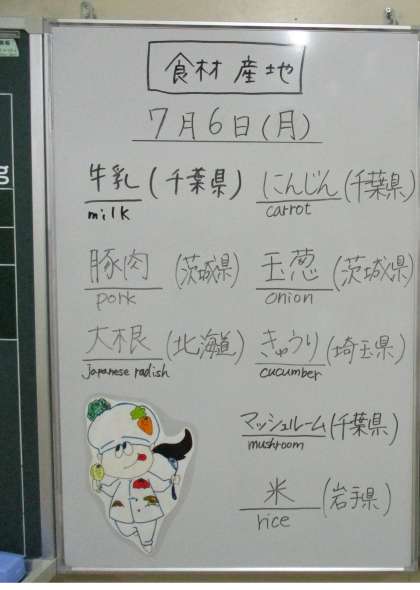 食材産地
7月6日(月)
牛乳(千葉県) にんじん(千葉県)
milk carrot
豚肉(茨城県) 玉葱(茨城県)
pork onion
大根(北海道) きゅうり(埼玉県)
japanese radish cucumber
マッシュルーム(千葉県)
mushroom
米(岩手県)
rice
g